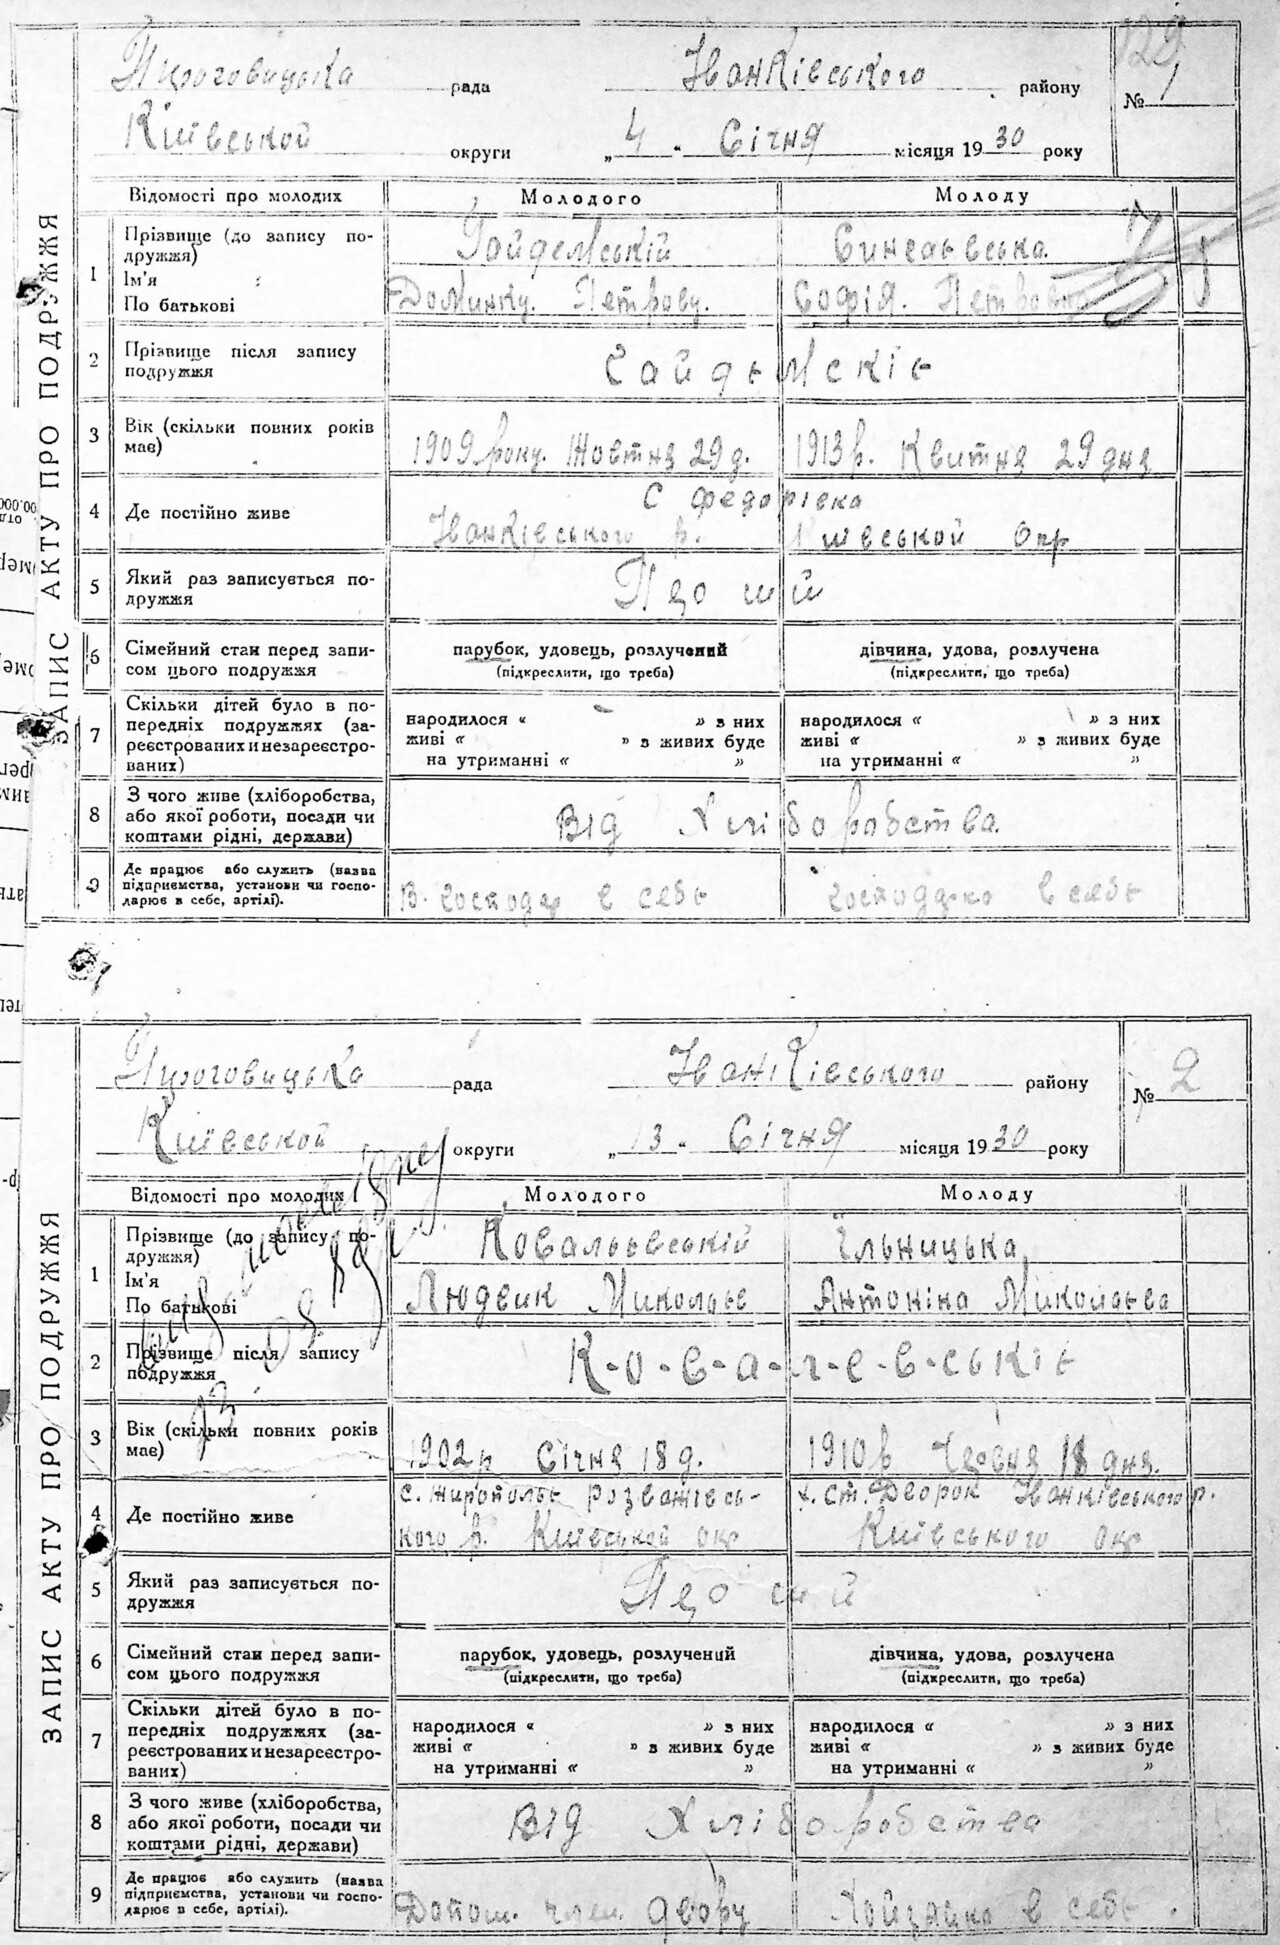 129
Пироговицька рада Іванківського району № 1
Київськой округи „4“ Січня місяця 1930 року
ЗАПИС АКТУ ПРО ПОДРУЖЖЯ
Відомості про молодих Молодого Молоду
1 Прізвище (до запису подружжя)
Ім'я
По батькові
Домініку. Петрову. Софія. Петровна
2 Прізвище після запису подружжя
3 Вік (скільки повних років має) 1909 року. Жовтня 29 д. 1913 р. Квитня 29 дня
4 Де постійно живе С Федорівка
Іванківського р. Київськой Окр
5 Який раз записується подружжя Перший
6 Сімейний стан перед записом цього подружжя парубок, удовець, розлучений дівчина, удова, розлучена
(підкреслити, що треба) (підкреслити, що треба)
7 Скільки дітей було в попередніх подружжях (зареєстрованих и незареєстрованих)
народилося “ ” з них народилося “ ” з них
живі “ ” з живих буде живі “ ” з живих буде
на утриманні “ ” на утриманні “ ”
8 З чого живе (хліборобства, або якої роботи, посади чи коштами рідні, держави) Від Хліборобства.
9 Де працює або служить (назва підприємства, установи чи господарює в себе, артілі).
в себе в себе
Пироговицька рада Іванківського району № 2
Київськой округи „13“ Січня місяця 1930 року
ЗАПИС АКТУ ПРО ПОДРУЖЖЯ
Відомості про молодих Молодого Молоду
1 Прізвище (до запису подружжя) Ільницька
Ім'я
По батькові
Людвик Миколаєв Антоніна Миколаєва
2 Прізвище після запису подружжя К-о-в-а-л-е-в-ськіє
3 Вік (скільки повних років має) 1902 р Січня 18 д. 1910 р Червня 18 дня.
4 Де постійно живе с. Жирополье Розважівсь- х. ст. Дворок Іванківського р.
кого р. Київськой окр Київського окр
5 Який раз записується подружжя Перший
6 Сімейний стан перед записом цього подружжя парубок, удовець, розлучений дівчина, удова, розлучена
(підкреслити, що треба) (підкреслити, що треба)
7 Скільки дітей було в попередніх подружжях (зареєстрованих и незареєстрованих)
народилося “ ” з них народилося “ ” з них
живі “ ” з живих буде живі “ ” з живих буде
на утриманні “ ” на утриманні “ ”
8 З чого живе (хліборобства, або якої роботи, посади чи коштами рідні, держави) Від Хліборобства
9 Де працює або служить (назва підприємства, установи чи господарює в себе, артілі).
Допом. член. двору в себе.